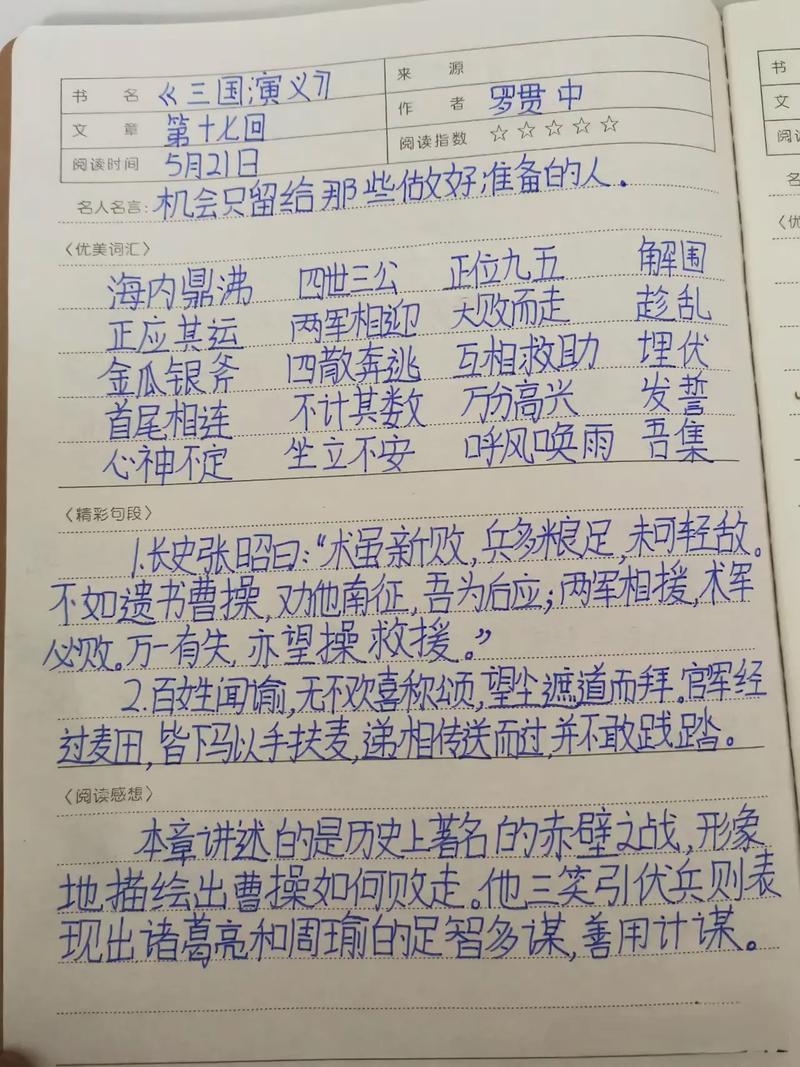 书 名 《三国演义》
来 源
文 章 第十七回
作 者 罗贯中
阅读时间 5月21日
阅读指数 ☆☆☆☆☆
名人名言: 机会只留给那些做好准备的人.
〈优美词汇〉
海内鼎沸 四世三公 正位九五 解围
正应其运 两军相迎 大败而走 趁乱
金瓜银斧 四散奔逃 互相救助 埋伏
首尾相连 不计其数 万分高兴 发誓
心神不定 坐立不安 呼风唤雨 吾集
〈精彩句段〉
1.长史张昭曰:“术虽新败,兵多粮足,未可轻敌。
不如遗书曹操,劝他南征,吾为后应;两军相援,术军
必败。万一有失,亦望操救援。”
2.百姓闻谕,无不欢喜称颂,望尘遮道而拜。官军经
过麦田,皆下马以手扶麦,递相传送而过,并不敢践踏。
〈阅读感想〉
本章讲述的是历史上著名的赤壁之战,形象
地描绘出曹操如何败走。他三笑引伏兵则表
现出诸葛亮和周瑜的足智多谋,善用计谋。
书
文
阅